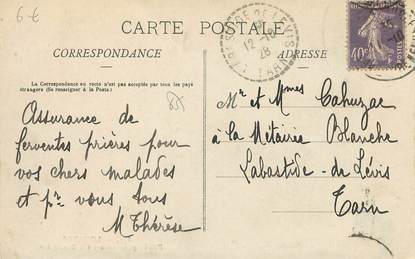 6 €
CARTE POSTALE
CORRESPONDANCE
ADRESSE
La Correspondance au recto n'est pas acceptée par tous les pays
étrangers (Se renseigner à la Poste)
Assurance de
ferventes prières pour
vos chers malades
et pr vous tous
M Thérèse
LABASTIDE DE LEVIS
12 -10
28
TARN
40c
POSTES
Mr et Mmes Cahuzac
à la Métairie Blanche
Labastide-de Lévis
Tarn